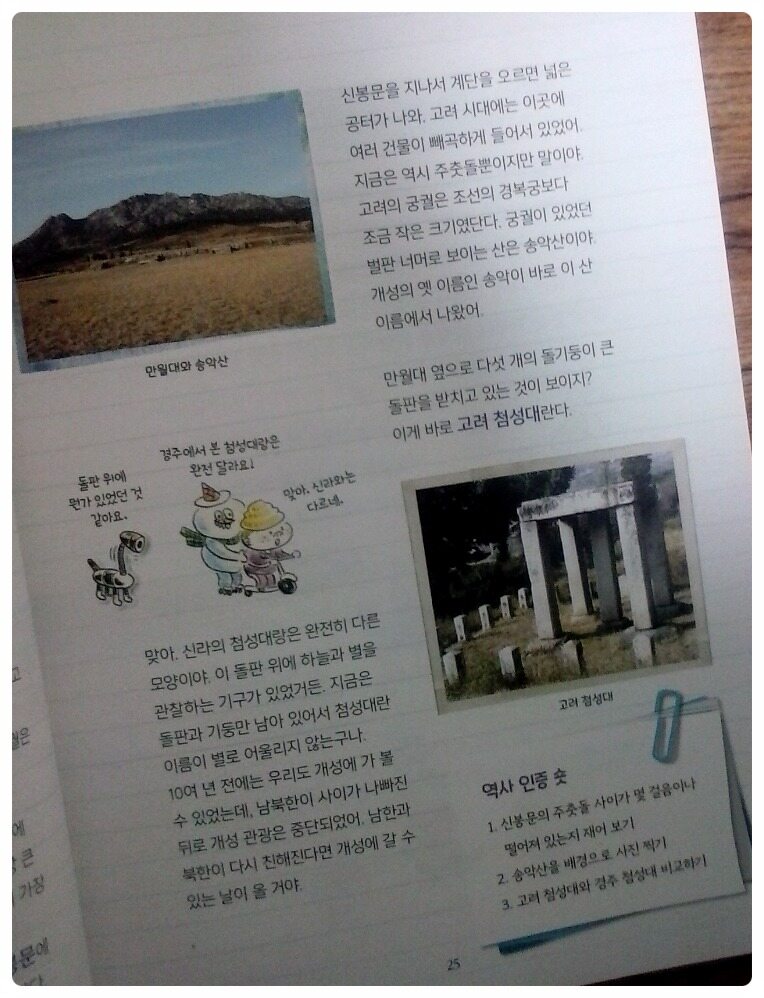 신봉문을 지나서 계단을 오르면 넓은
공터가 나와. 고려 시대에는 이곳에
여러 건물이 빼곡하게 들어서 있었어.
지금은 역시 주춧돌뿐이지만 말이야.
고려의 궁궐은 조선의 경복궁보다
조금 작은 크기였단다. 궁궐이 있었던
벌판 너머로 보이는 산은 송악산이야.
개성의 옛 이름인 송악이 바로 이 산
이름에서 나왔어.
만월대와 송악산
만월대 옆으로 다섯 개의 돌기둥이 큰
돌판을 받치고 있는 것이 보이지?
이게 바로 고려 첨성대란다.
돌판 위에
뭔가 있었던 것
같아요.
경주에서 본 첨성대랑은
완전 달라요!
맞아. 신라와는
다르네.
고려 첨성대
맞아. 신라의 첨성대랑은 완전히 다른
모양이야. 이 돌판 위에 하늘과 별을
관찰하는 기구가 있었거든. 지금은
돌판과 기둥만 남아 있어서 첨성대란
이름이 별로 어울리지 않는구나.
10여 년 전에는 우리도 개성에 가 볼
수 있었는데, 남북한이 사이가 나빠진
뒤로 개성 관광은 중단되었어. 남한과
북한이 다시 친해진다면 개성에 갈 수
있는 날이 올 거야.
역사 인증 숏
1. 신봉문의 주춧돌 사이가 몇 걸음이나
떨어져 있는지 재어 보기
2. 송악산을 배경으로 사진 찍기
3. 고려 첨성대와 경주 첨성대 비교하기
25
고
에
큰
가장
문에